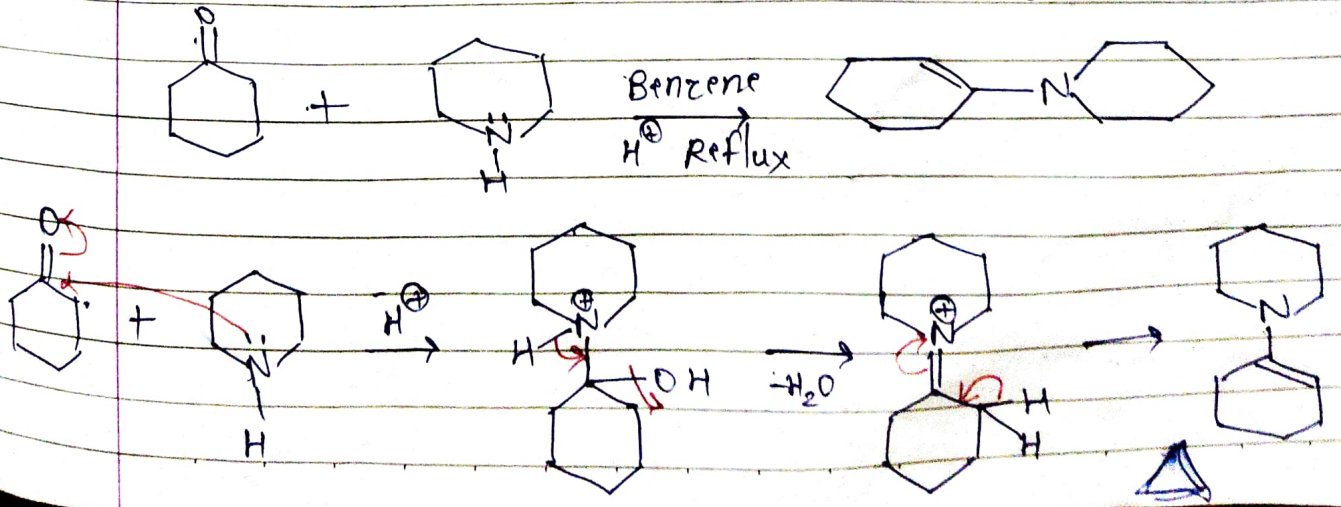 O
+
N
H
Benzene
H⊕ Reflux
N
O
+
N
H
H⊕
⊕
N
H
OH
-H₂O
⊕
N
H
H
N